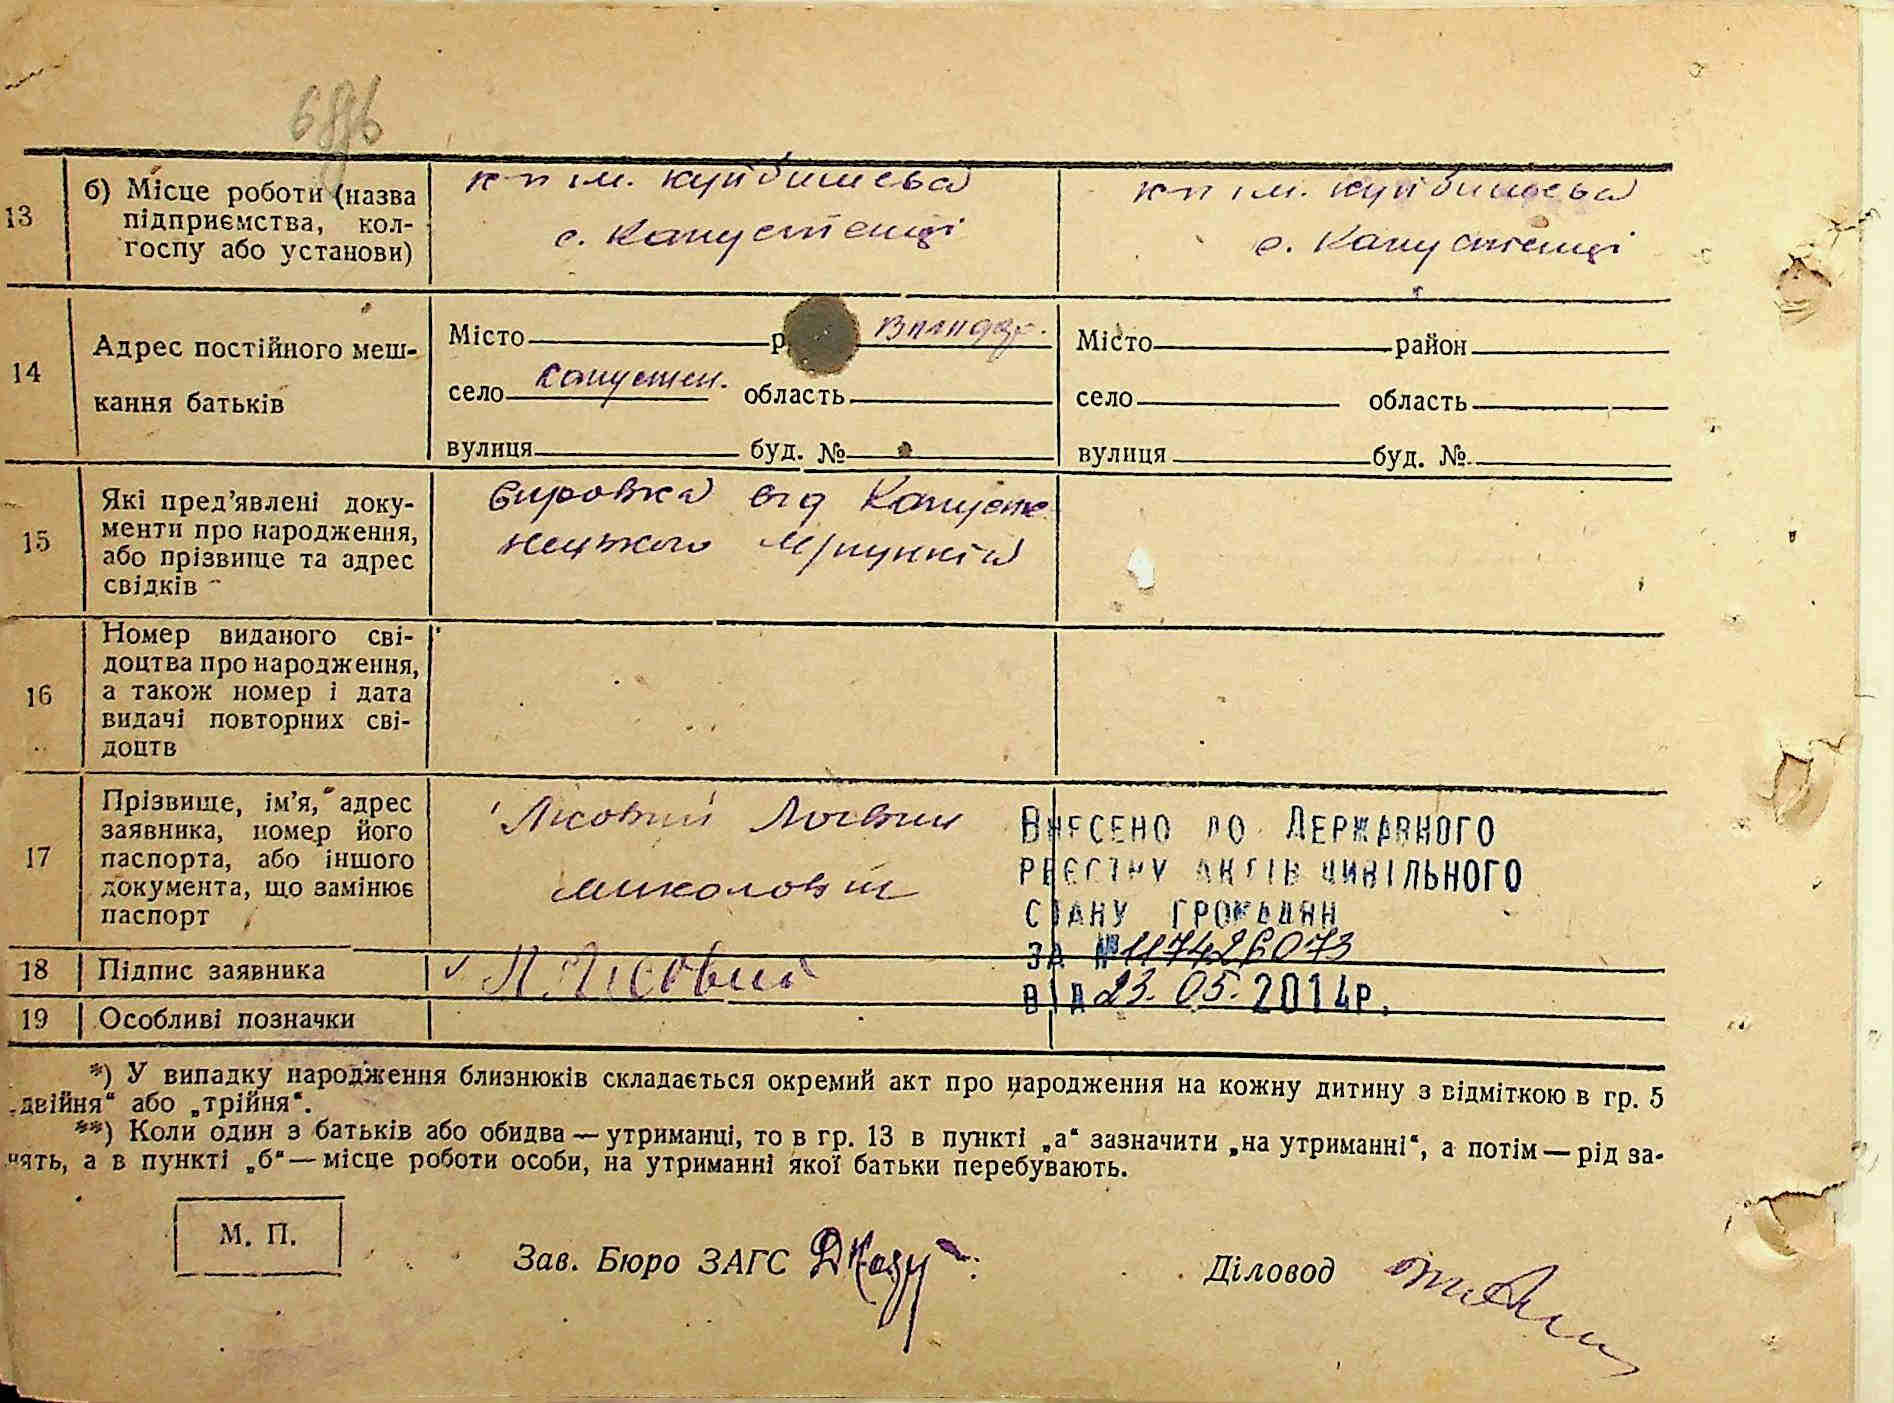 13
б) Місце роботи (назва
підприємства, кол-
госпу або установи)
к-п ім. Куйбишева
с. Капустенці
к-п ім. Куйбишева
с. Капустенці
14
Адрес постійного меш-
кання батьків
Місто
село Капустен. область
вулиця буд. №
Місто район
село область
вулиця буд. №
15
Які пред'явлені доку-
менти про народження,
або прізвище та адрес
свідків
від
16
Номер виданого сві-
доцтва про народження,
а також номер і дата
видачі повторних сві-
доцтв
17
Прізвище, ім'я, адрес
заявника, номер його
паспорта, або іншого
документа, що замінює
паспорт
Лісовий Логвин
Миколович
Внесено до Державного
реєстру актів цивільного
стану громадян
за № 117426073
від 23.05.2014р.
18
Підпис заявника
Л. Лісовий
19
Особливі позначки
*) У випадку народження близнюків складається окремий акт про народження на кожну дитину з відміткою в гр. 5
„двійня“ або „трійня“.
**) Коли один з батьків або обидва — утриманці, то в гр. 13 в пункті „а“ зазначити „на утриманні“, а потім — рід за-
нять, а в пункті „б“ — місце роботи особи, на утриманні якої батьки перебувають.
М. П.
Зав. Бюро ЗАГС
Діловод